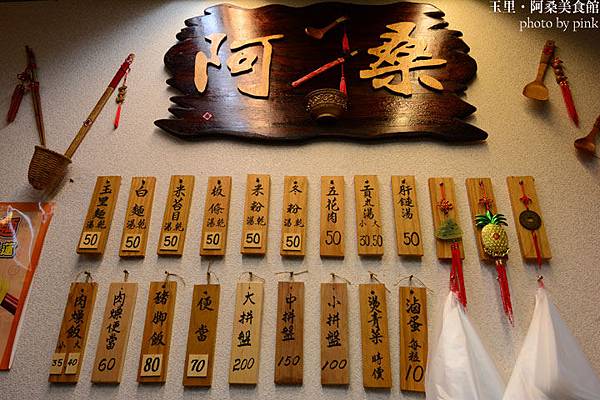 玉里・阿桑美食館
photo by pink
阿桑
玉里麵 湯乾 50
白麵 湯乾 50
米苔目 湯乾 50
板條 湯乾 50
柔粉 湯乾 50
冬粉 湯乾 50
五花肉 50
貢丸湯 小大 30.50
肝鏈湯 50
肉燥飯 小大 35 40
肉燥便當 60
豬腳飯 80
便當 70
大拼盤 200
中拼盤 150
小拼盤 100
燙青菜 時價
滷蛋 每粒 10